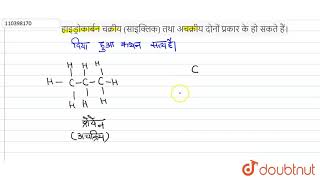 110398170
हाइड्रोकार्बन चक्रीय (साइक्लिक) तथा अचक्रीय दोनों प्रकार के हो सकते हैं।
दिया हुआ कथन सत्य है।
H H H
H-C-C-C-H
H H H
प्रोपेन
(अचक्रिय)
C
doubtnut